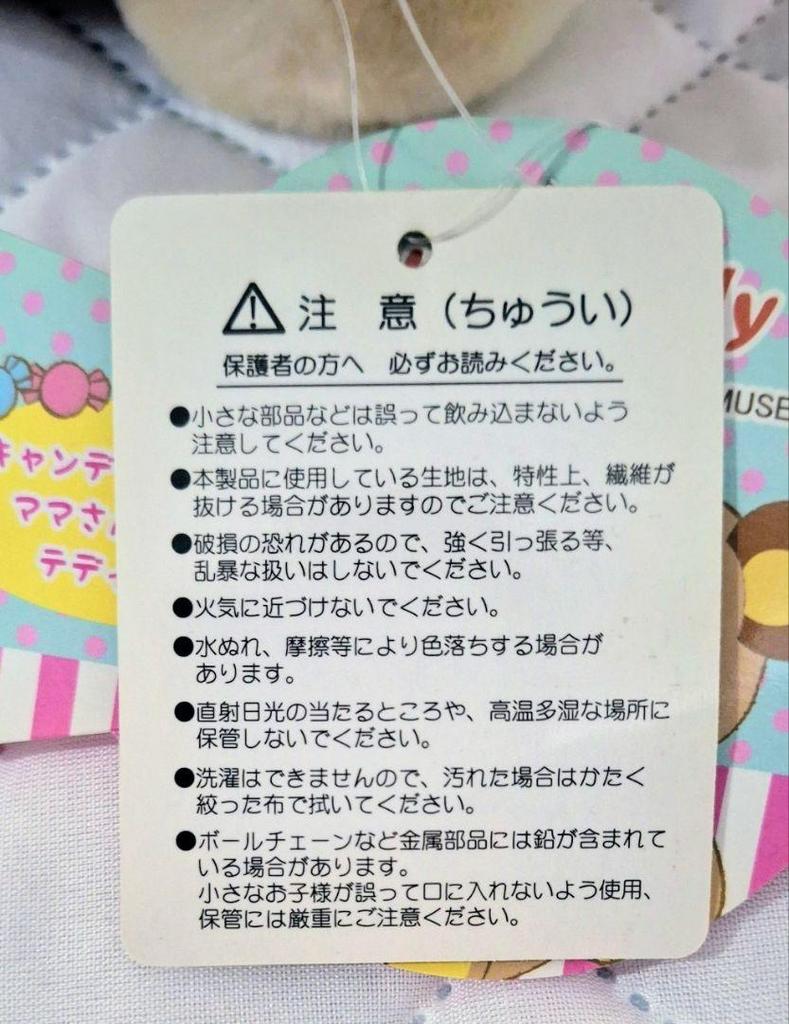 ⚠注　意（ちゅうい）
保護者の方へ　必ずお読みください。
●小さな部品などは誤って飲み込まないよう
注意してください。
●本製品に使用している生地は、特性上、繊維が
抜ける場合がありますのでご注意ください。
●破損の恐れがあるので、強く引っ張る等、
乱暴な扱いはしないでください。
●火気に近づけないでください。
●水ぬれ、摩擦等により色落ちする場合が
あります。
●直射日光の当たるところや、高温多湿な場所に
保管しないでください。
●洗濯はできませんので、汚れた場合はかたく
絞った布で拭いてください。
●ボールチェーンなど金属部品には鉛が含まれて
いる場合があります。
小さなお子様が誤って口に入れないよう使用、
保管には厳重にご注意ください。
キャンデ
ママさ
テデ
ly
MUSE